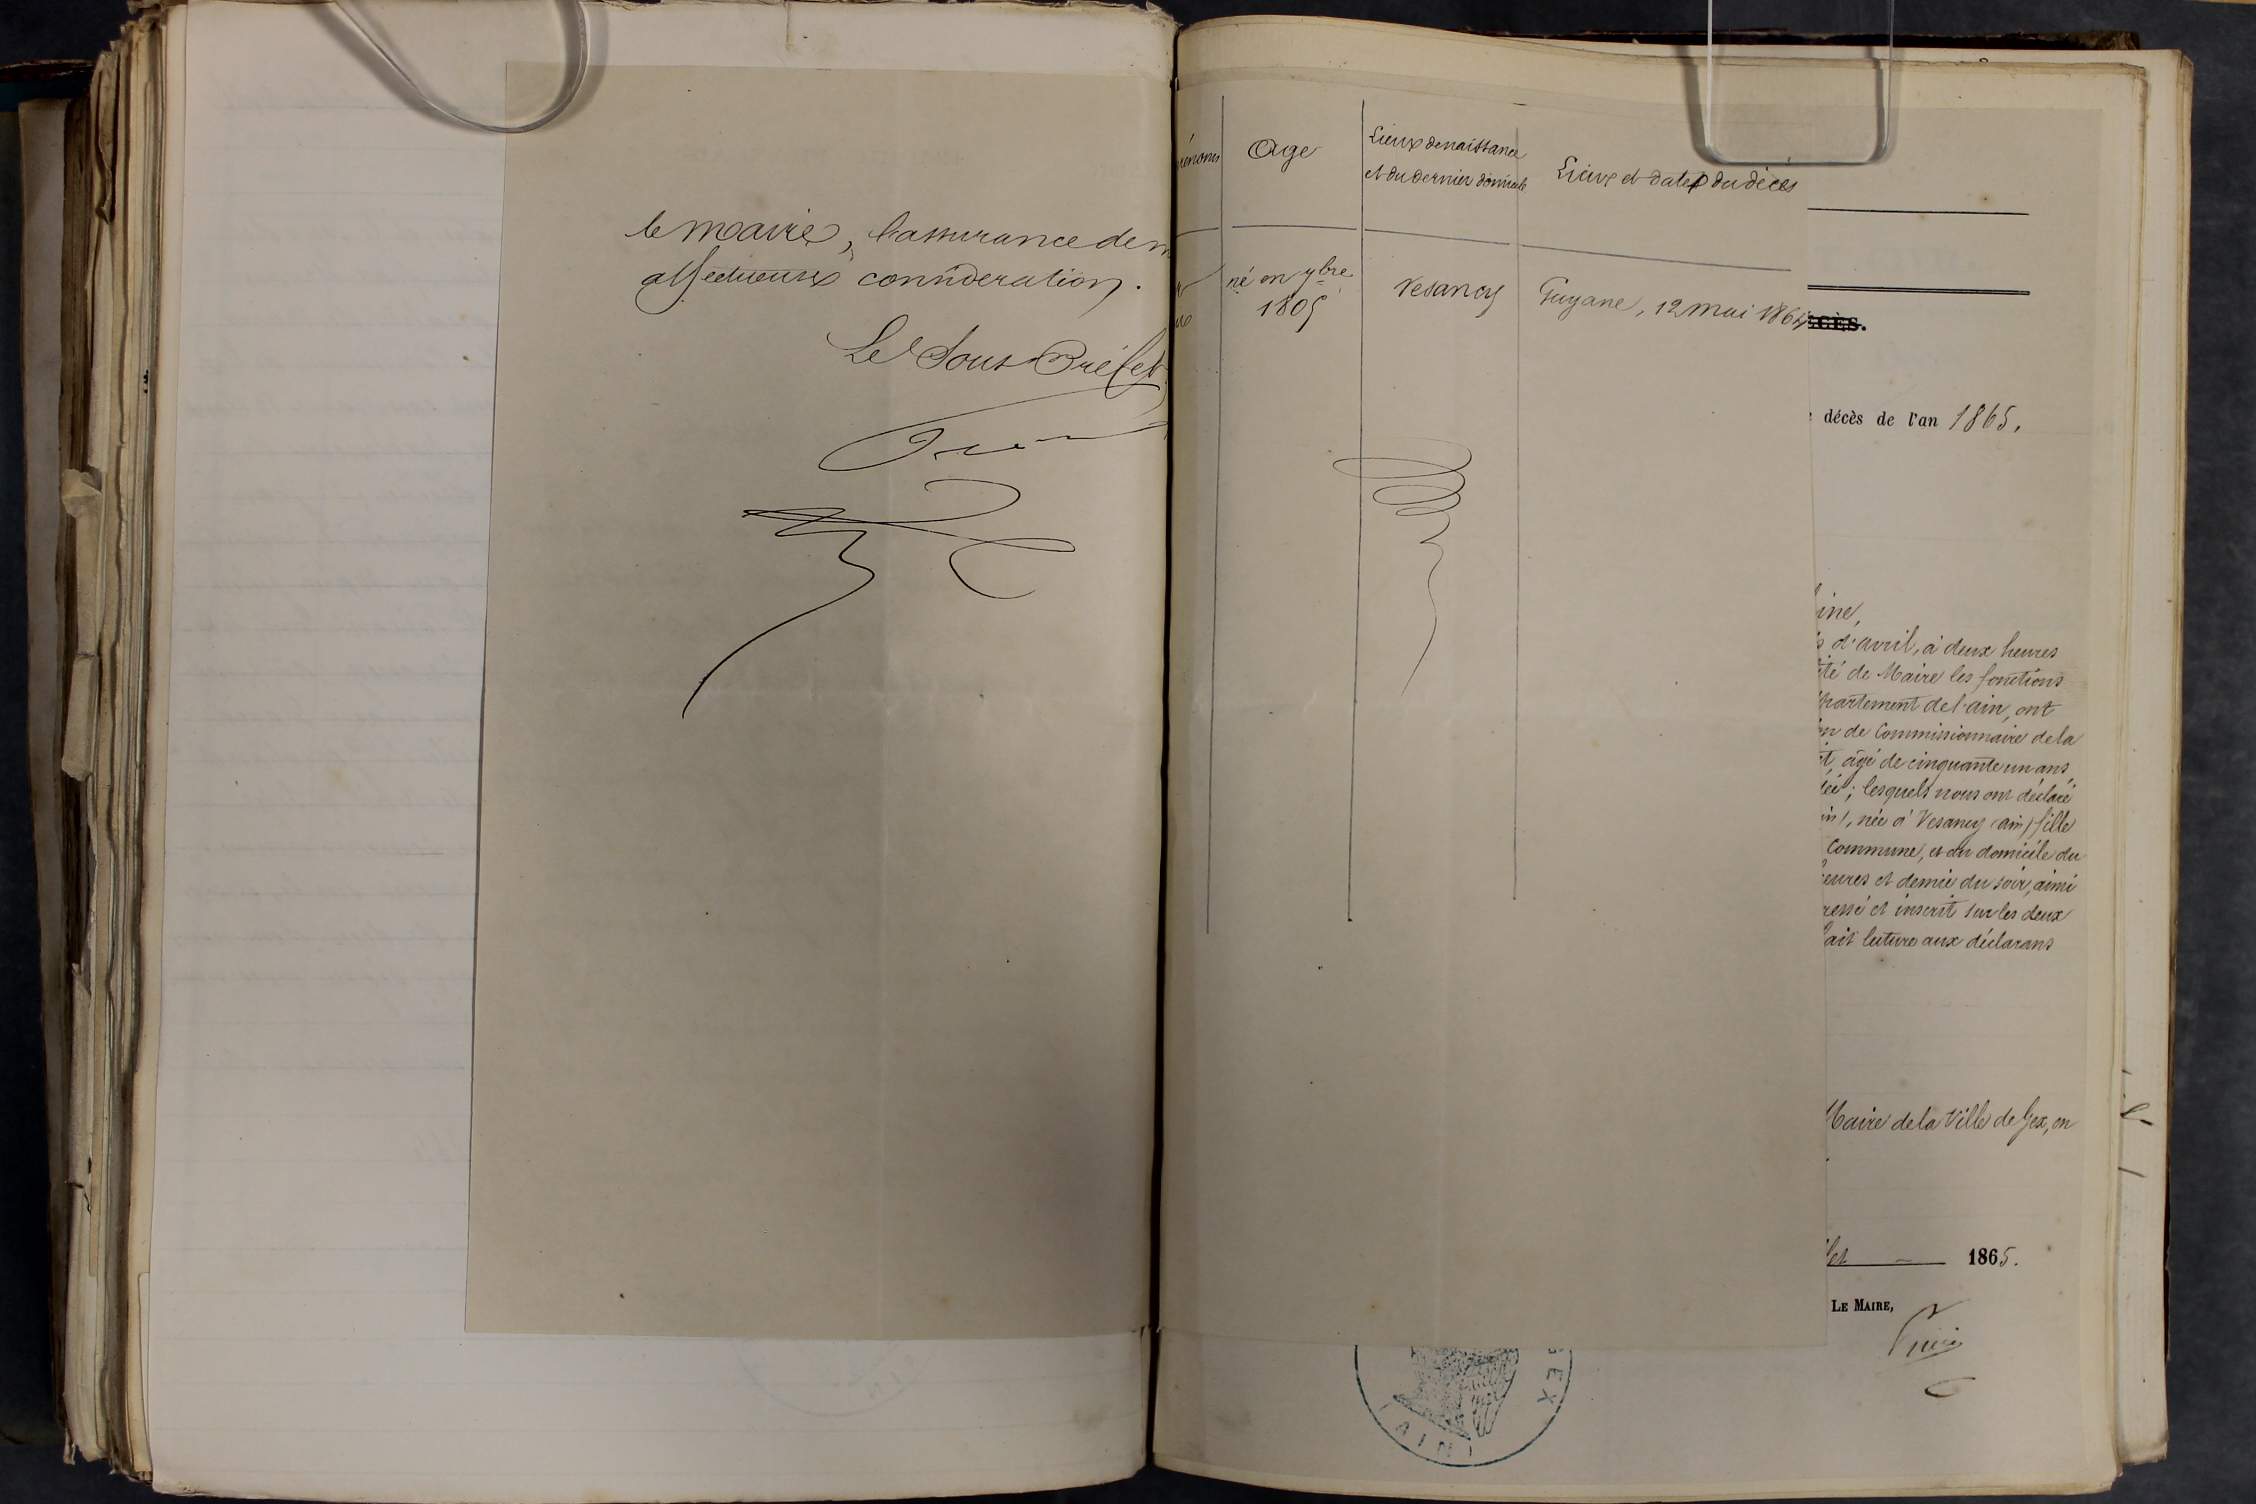 le Maire, l'assurance de m
affectueuse considération.
Le Sous Préfet
rénoms
Age
Lieux de naissance
et du dernier domicile
Lieux et date du décès
né en 9bre
1809
Vesancy
Guyane, 12 mai 1864
décès de l'an 1865.
ine,
d'avril, à deux heures
ité de Maire les fonctions
partement de l'ain, ont
de Commissionnaire de la
t, âgé de cinquante un ans,
; lesquels nous ont déclaré
in), née à Vesancy (ain) fille
Commune, et au domicile du
eures et demie du soir, ainsi
ressé et inscrit sur les deux
fait lecture aux déclarans
Maire de la Ville de Gex, en
let 1865.
LE MAIRE,
GEX
(AIN)